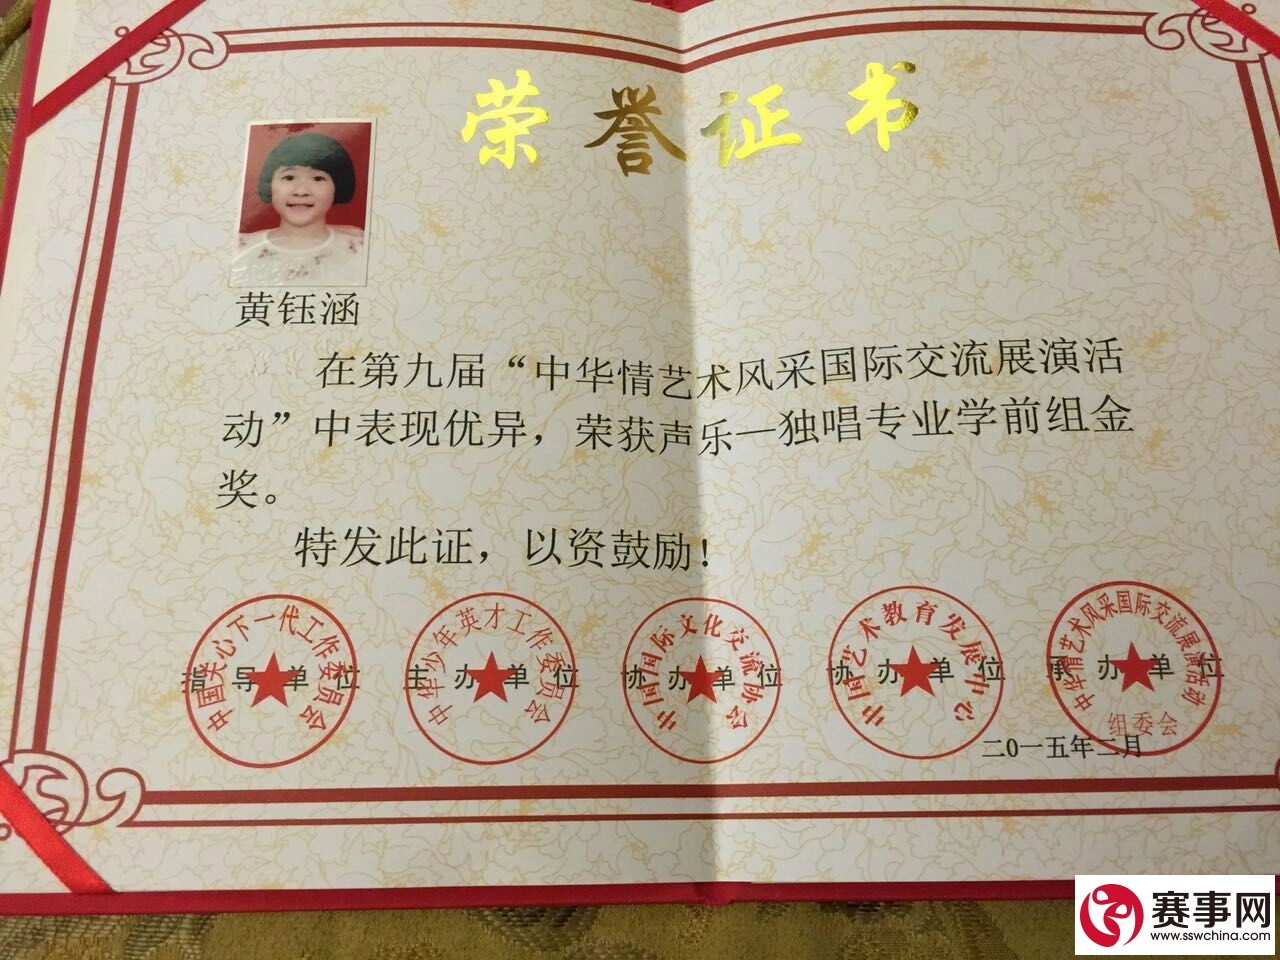 荣誉证书
黄钰涵
在第九届“中华情艺术风采国际交流展演活
动”中表现优异，荣获声乐—独唱专业学前组金
奖。
特发此证，以资鼓励！
中国关心下一代工作委员会
指导单位
中华少年英才工作委员会
主办单位
中国国际文化交流协会
协办单位
中国艺术教育发展中心
协办单位
中华情艺术风采国际交流展演活动
承办单位
组委会
二0一五年二月
赛事网
www.sswchina.com